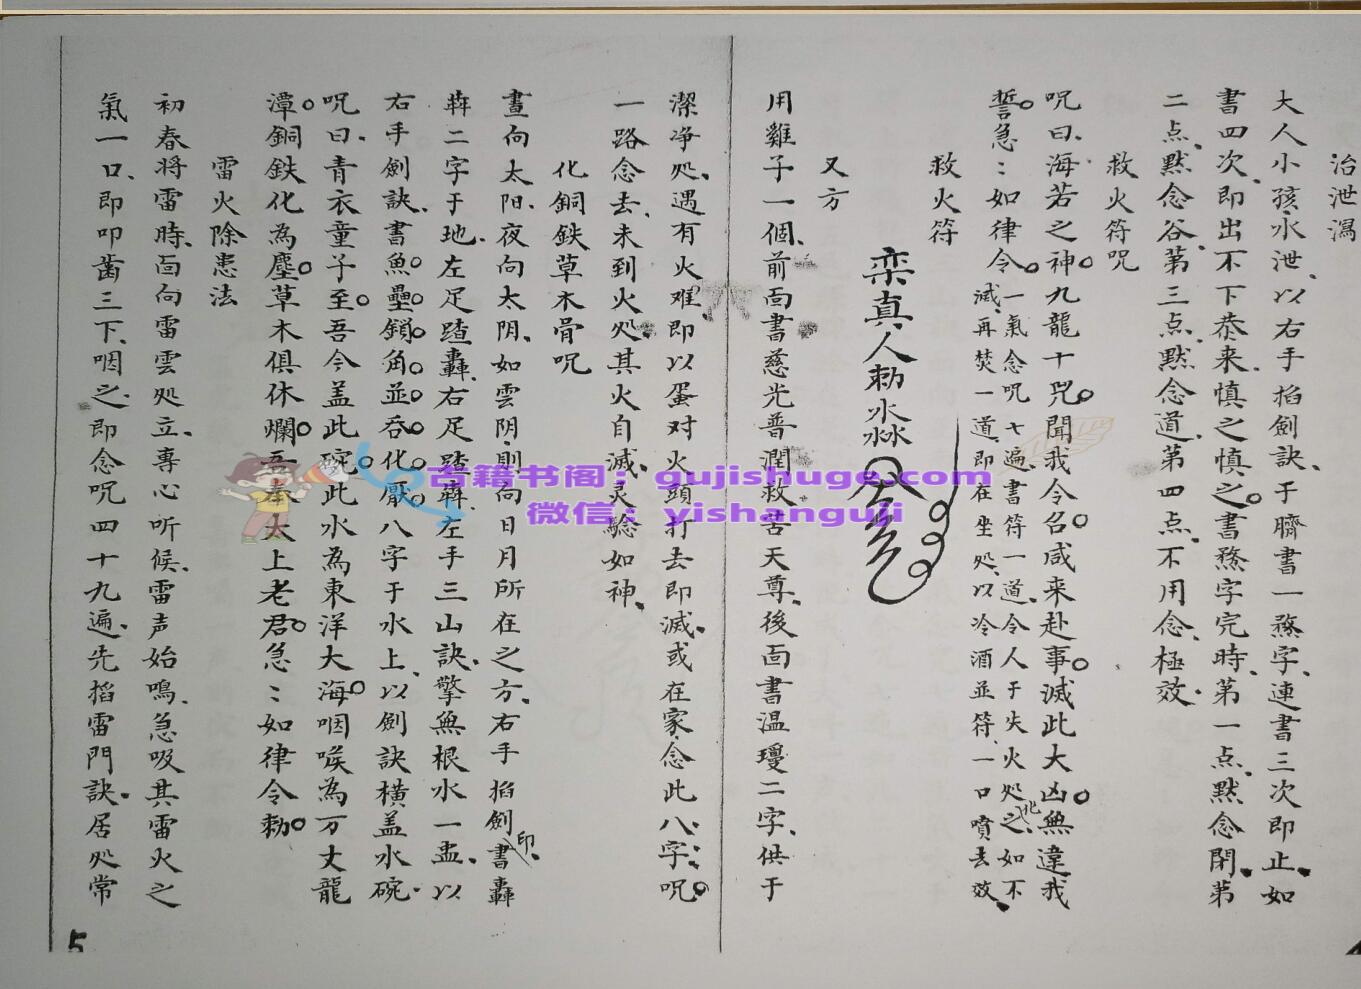 治泄瀉
大人小孩水泄、以右手掐劍訣、于臍書一鵞字、連書三次即止、如
書四次、即出不下恭来、慎之慎之。書鵞字完時、第一点、黙念開、第
二点、黙念谷、第三点、黙念道、第四点、不用念、極效、
救火符咒
咒曰、海若之神。九龍十咒。聞我今名。咸来赴事。滅此大凶。無違我
誓。急〻如律令。
一氣念咒七遍、書符一道、令人于失火処化之、如不
滅、再焚一道、即在坐処、以冷酒並符、一口噴去效、
救火符
栾真人勅水淼
又方
用雞子一個、前靣書慈光普潤救苦天尊、後靣書温瓊二字、供于
潔净処、遇有火难、即以蛋对火頭打去即滅、或在家、念此八字咒。
一路念去、未到火処、其火自滅、灵驗如神、
化銅鉄草木骨咒
晝向太阳、夜向太阴、如雲阴、則向日月所在之方、右手掐劍印、書轟
犇二字于地、左足踏轟、右足踏犇、左手三山訣、擎無根水一盂、以
右手劍訣、書魚。壘。鎖。角。並。吞。化。厭。八字于水上、以劍訣横盖水碗、
咒曰、青衣童子至。吾今盖此碗。此水為東洋大海。咽喉為万丈龍
潭。銅鉄化為塵。草木俱休爛。吾奉太上老君。急〻如律令勅。
雷火除患法
初春将雷時、靣向雷雲処立、專心听候、雷声始鳴、急吸其雷火之
氣一口、即叩齒三下、咽之、即念咒四十九遍、先掐雷門訣、居処常
5
古籍书阁：gujishuge.com
微信：yishanguji